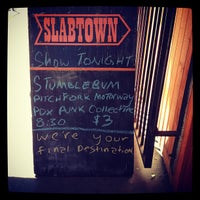 SLABTOWN
SHOW TONIGHT
STUMBLEBUM
PITCHFORK MOTORWAY
PDX PUNK COLLECTIVE
8:30 $3
We're your
final Destination